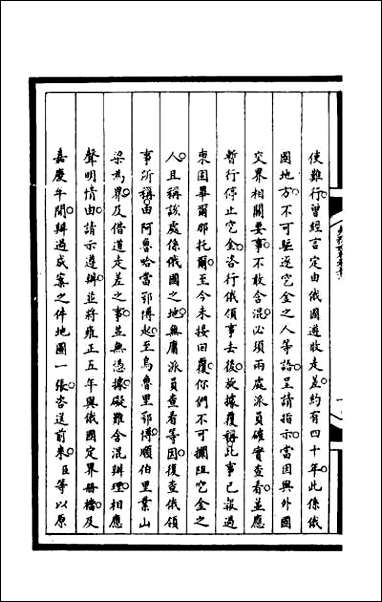 使難行曾經言定由俄國遵收走差約有四十年此係俄
國地方不可驅逐挖金之人等語呈請指示當因與外國
交界相關要事不敢含混必須兩處派員確實查看並應
暫行停止挖金咨行俄領事去後旋據覆稱此事已報過
東固畢爾那托爾至今未接回覆你們不可攔阻挖金之
人且稱該處係俄國之地無庸派員查看等因復查俄領
事所稱由阿魯哈當鄂博起至烏魯里鄂博順伯里業山
梁為界及借道走差之事並無憑據礙難含混辦理相應
聲明情由請示遵辦並將雍正五年與俄國定界冊檔及
嘉慶年間辦過成案之件地圖一張咨送前來臣等以原